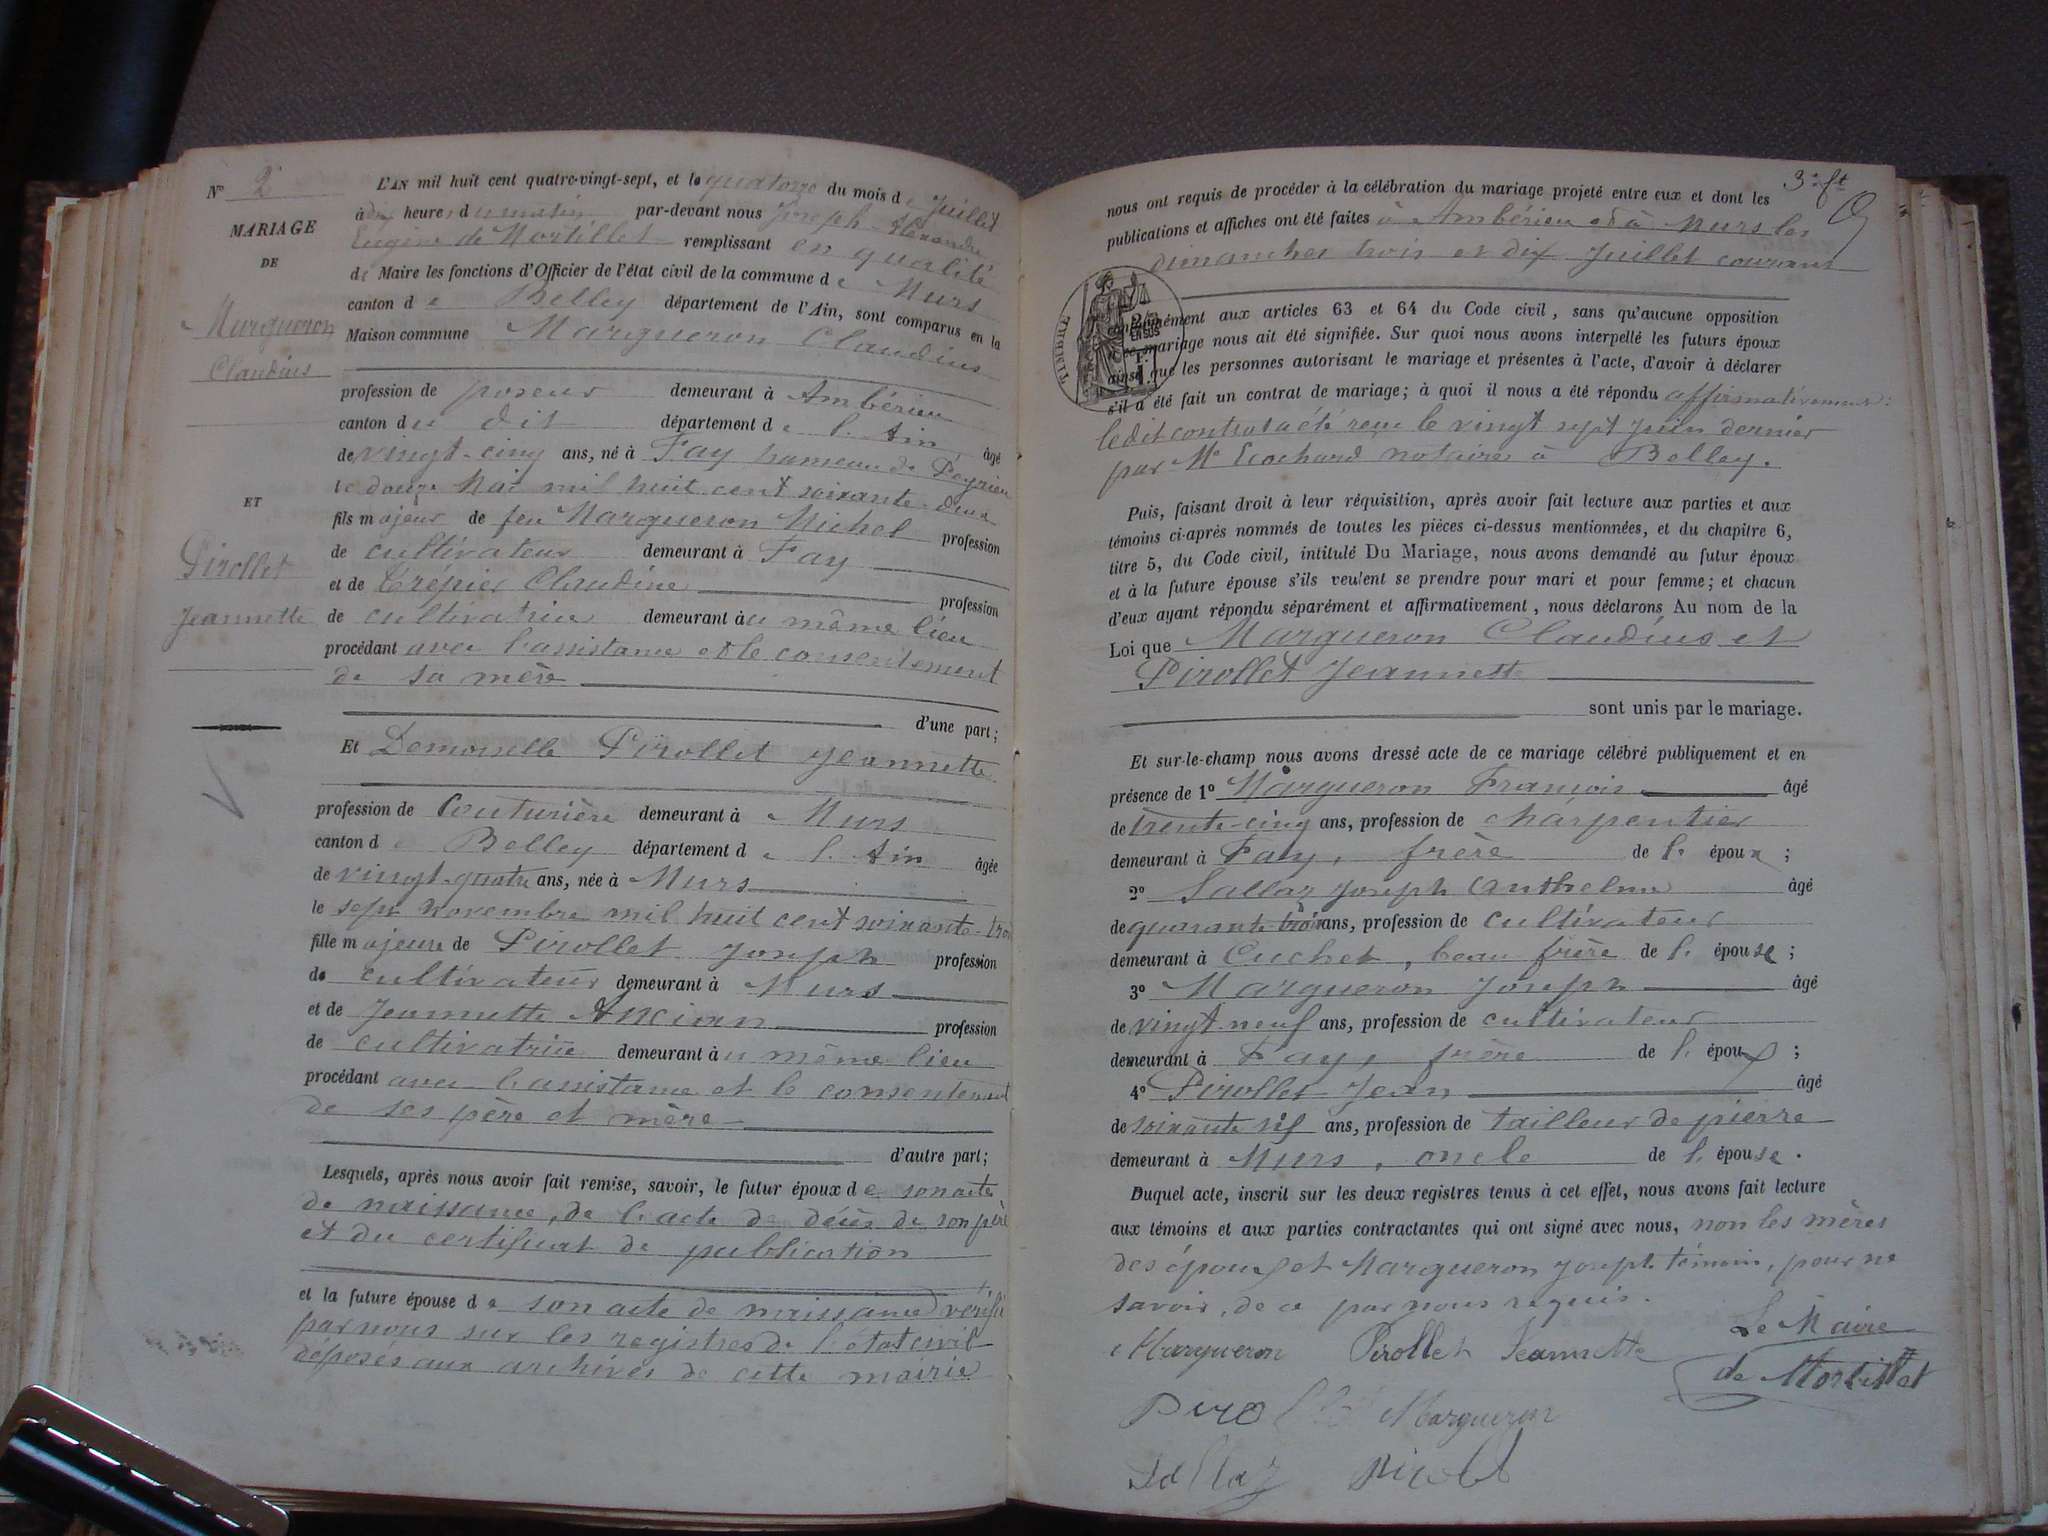 Nº 2
MARIAGE
DE
Margueron
Claudius
ET
Pirollet
Jeannette
L'AN mil huit cent quatre-vingt-sept, et le quatorze du mois de Juillet
à dix heures du matin par-devant nous Joseph Alexandre
Eugène de Mortillet remplissant en qualité
de Maire les fonctions d'Officier de l'état civil de la commune de Murs
canton de Belley département de l'Ain, sont comparus en la
Maison commune Margueron Claudius
profession de poseur demeurant à Ambérieu
canton du dit département de l'Ain âgé
de vingt-cinq ans, né à Fay hameau de Peyrieu
le douze Mai mil huit cent soixante-deux
fils majeur de feu Margueron Michel profession
de cultivateur demeurant à Fay
et de Trépier Claudine profession
de cultivatrice demeurant au même lieu
procédant avec l'assistance et le consentement
de sa mère
d'une part;
Et Demoiselle Pirollet Jeannette
profession de Couturière demeurant à Murs
canton de Belley département de l'Ain âgée
de vingt-quatre ans, née à Murs
le sept novembre mil huit cent soixante-trois
fille majeure de Pirollet Joseph profession
de cultivateur demeurant à Murs
et de Jeannette Ancian profession
de cultivatrice demeurant au même lieu
procédant avec l'assistance et le consentement
de ses père et mère
d'autre part;
Lesquels, après nous avoir fait remise, savoir, le futur époux de son acte
de naissance, de l'acte de décès de son père
et du certificat de publication
et la future épouse de son acte de naissance vérifié
par nous sur les registres de l'état civil
déposés aux archives de cette mairie
3e ft
nous ont requis de procéder à la célébration du mariage projeté entre eux et dont les
publications et affiches ont été faites à Ambérieu et à Murs les
dimanches trois et dix Juillet courant
TIMBRE
conformément aux articles 63 et 64 du Code civil, sans qu'aucune opposition
à ce mariage nous ait été signifiée. Sur quoi nous avons interpellé les futurs époux
ainsi que les personnes autorisant le mariage et présentes à l'acte, d'avoir à déclarer
s'il a été fait un contrat de mariage; à quoi il nous a été répondu affirmativement:
ledit contrat a été reçu le vingt sept juin dernier
par Me Ecochard notaire à Belley.
Puis, faisant droit à leur réquisition, après avoir fait lecture aux parties et aux
témoins ci-après nommés de toutes les pièces ci-dessus mentionnées, et du chapitre 6,
titre 5, du Code civil, intitulé Du Mariage, nous avons demandé au futur époux
et à la future épouse s'ils veulent se prendre pour mari et pour femme; et chacun
d'eux ayant répondu séparément et affirmativement, nous déclarons Au nom de la
Loi que Margueron Claudius et
Pirollet Jeannette
sont unis par le mariage.
Et sur-le-champ nous avons dressé acte de ce mariage célébré publiquement et en
présence de 1º Margueron François âgé
de trente-cinq ans, profession de charpentier
demeurant à Fay, frère de l'époux;
2º Sallaz Joseph Anthelme âgé
de quarante trois ans, profession de cultivateur
demeurant à Cuchet, beau frère de l'épouse;
3º Margueron Joseph âgé
de vingt neuf ans, profession de cultivateur
demeurant à Fay, frère de l'époux;
4º Pirollet Jean âgé
de soixante six ans, profession de tailleur de pierre
demeurant à Murs, oncle de l'épouse.
Duquel acte, inscrit sur les deux registres tenus à cet effet, nous avons fait lecture
aux témoins et aux parties contractantes qui ont signé avec nous, non les mères
des époux et Margueron Joseph témoin, pour ne
savoir, de ce par nous requis.
Margueron Pirollet Jeannette
Le Maire
de Mortillet
Margueron
Sallaz